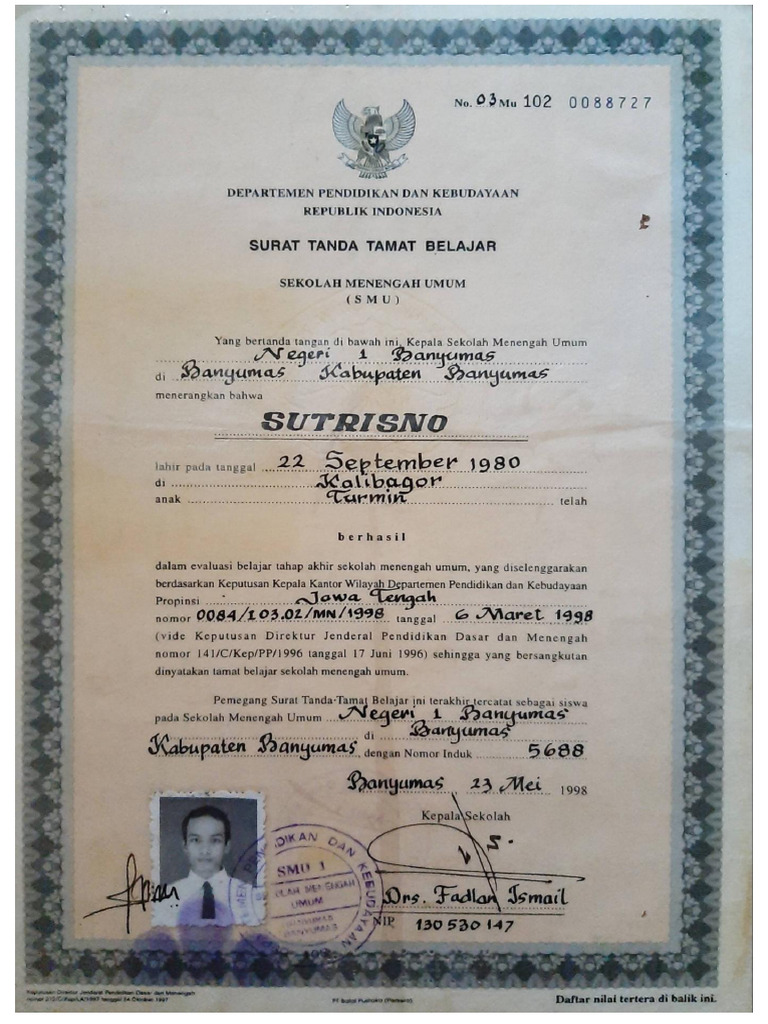 No. 03 Mu 102 0088727
DEPARTEMEN PENDIDIKAN DAN KEBUDAYAAN
REPUBLIK INDONESIA
SURAT TANDA TAMAT BELAJAR
SEKOLAH MENENGAH UMUM
( S M U )
Yang bertanda tangan di bawah ini, Kepala Sekolah Menengah Umum
Negeri 1 Banyumas
di Banyumas Kabupaten Banyumas
menerangkan bahwa
SUTRISNO
lahir pada tanggal 22 September 1980
di Kalibagor
anak Turmin telah
berhasil
dalam evaluasi belajar tahap akhir sekolah menengah umum, yang diselenggarakan
berdasarkan Keputusan Kepala Kantor Wilayah Departemen Pendidikan dan Kebudayaan
Propinsi Jawa Tengah
nomor 0084/I03.02/MN/1998 tanggal 6 Maret 1998
(vide Keputusan Direktur Jenderal Pendidikan Dasar dan Menengah
nomor 141/C/Kep/PP/1996 tanggal 17 Juni 1996) sehingga yang bersangkutan
dinyatakan tamat belajar sekolah menengah umum.
Pemegang Surat Tanda Tamat Belajar ini terakhir tercatat sebagai siswa
pada Sekolah Menengah Umum Negeri 1 Banyumas
di Banyumas
Kabupaten Banyumas, dengan Nomor Induk 5688
Banyumas 23 Mei 1998
Kepala Sekolah
DIKAN DAN KEBUDAYAAN
SMU 1
MENENGAH
UMUM
BANYUMAS
Drs. Fadlan Ismail
NIP 130530147
Keputusan Direktur Jenderal Pendidikan Dasar dan Menengah
tanggal 24 Oktober 1997
Daftar nilai tertera di balik ini.